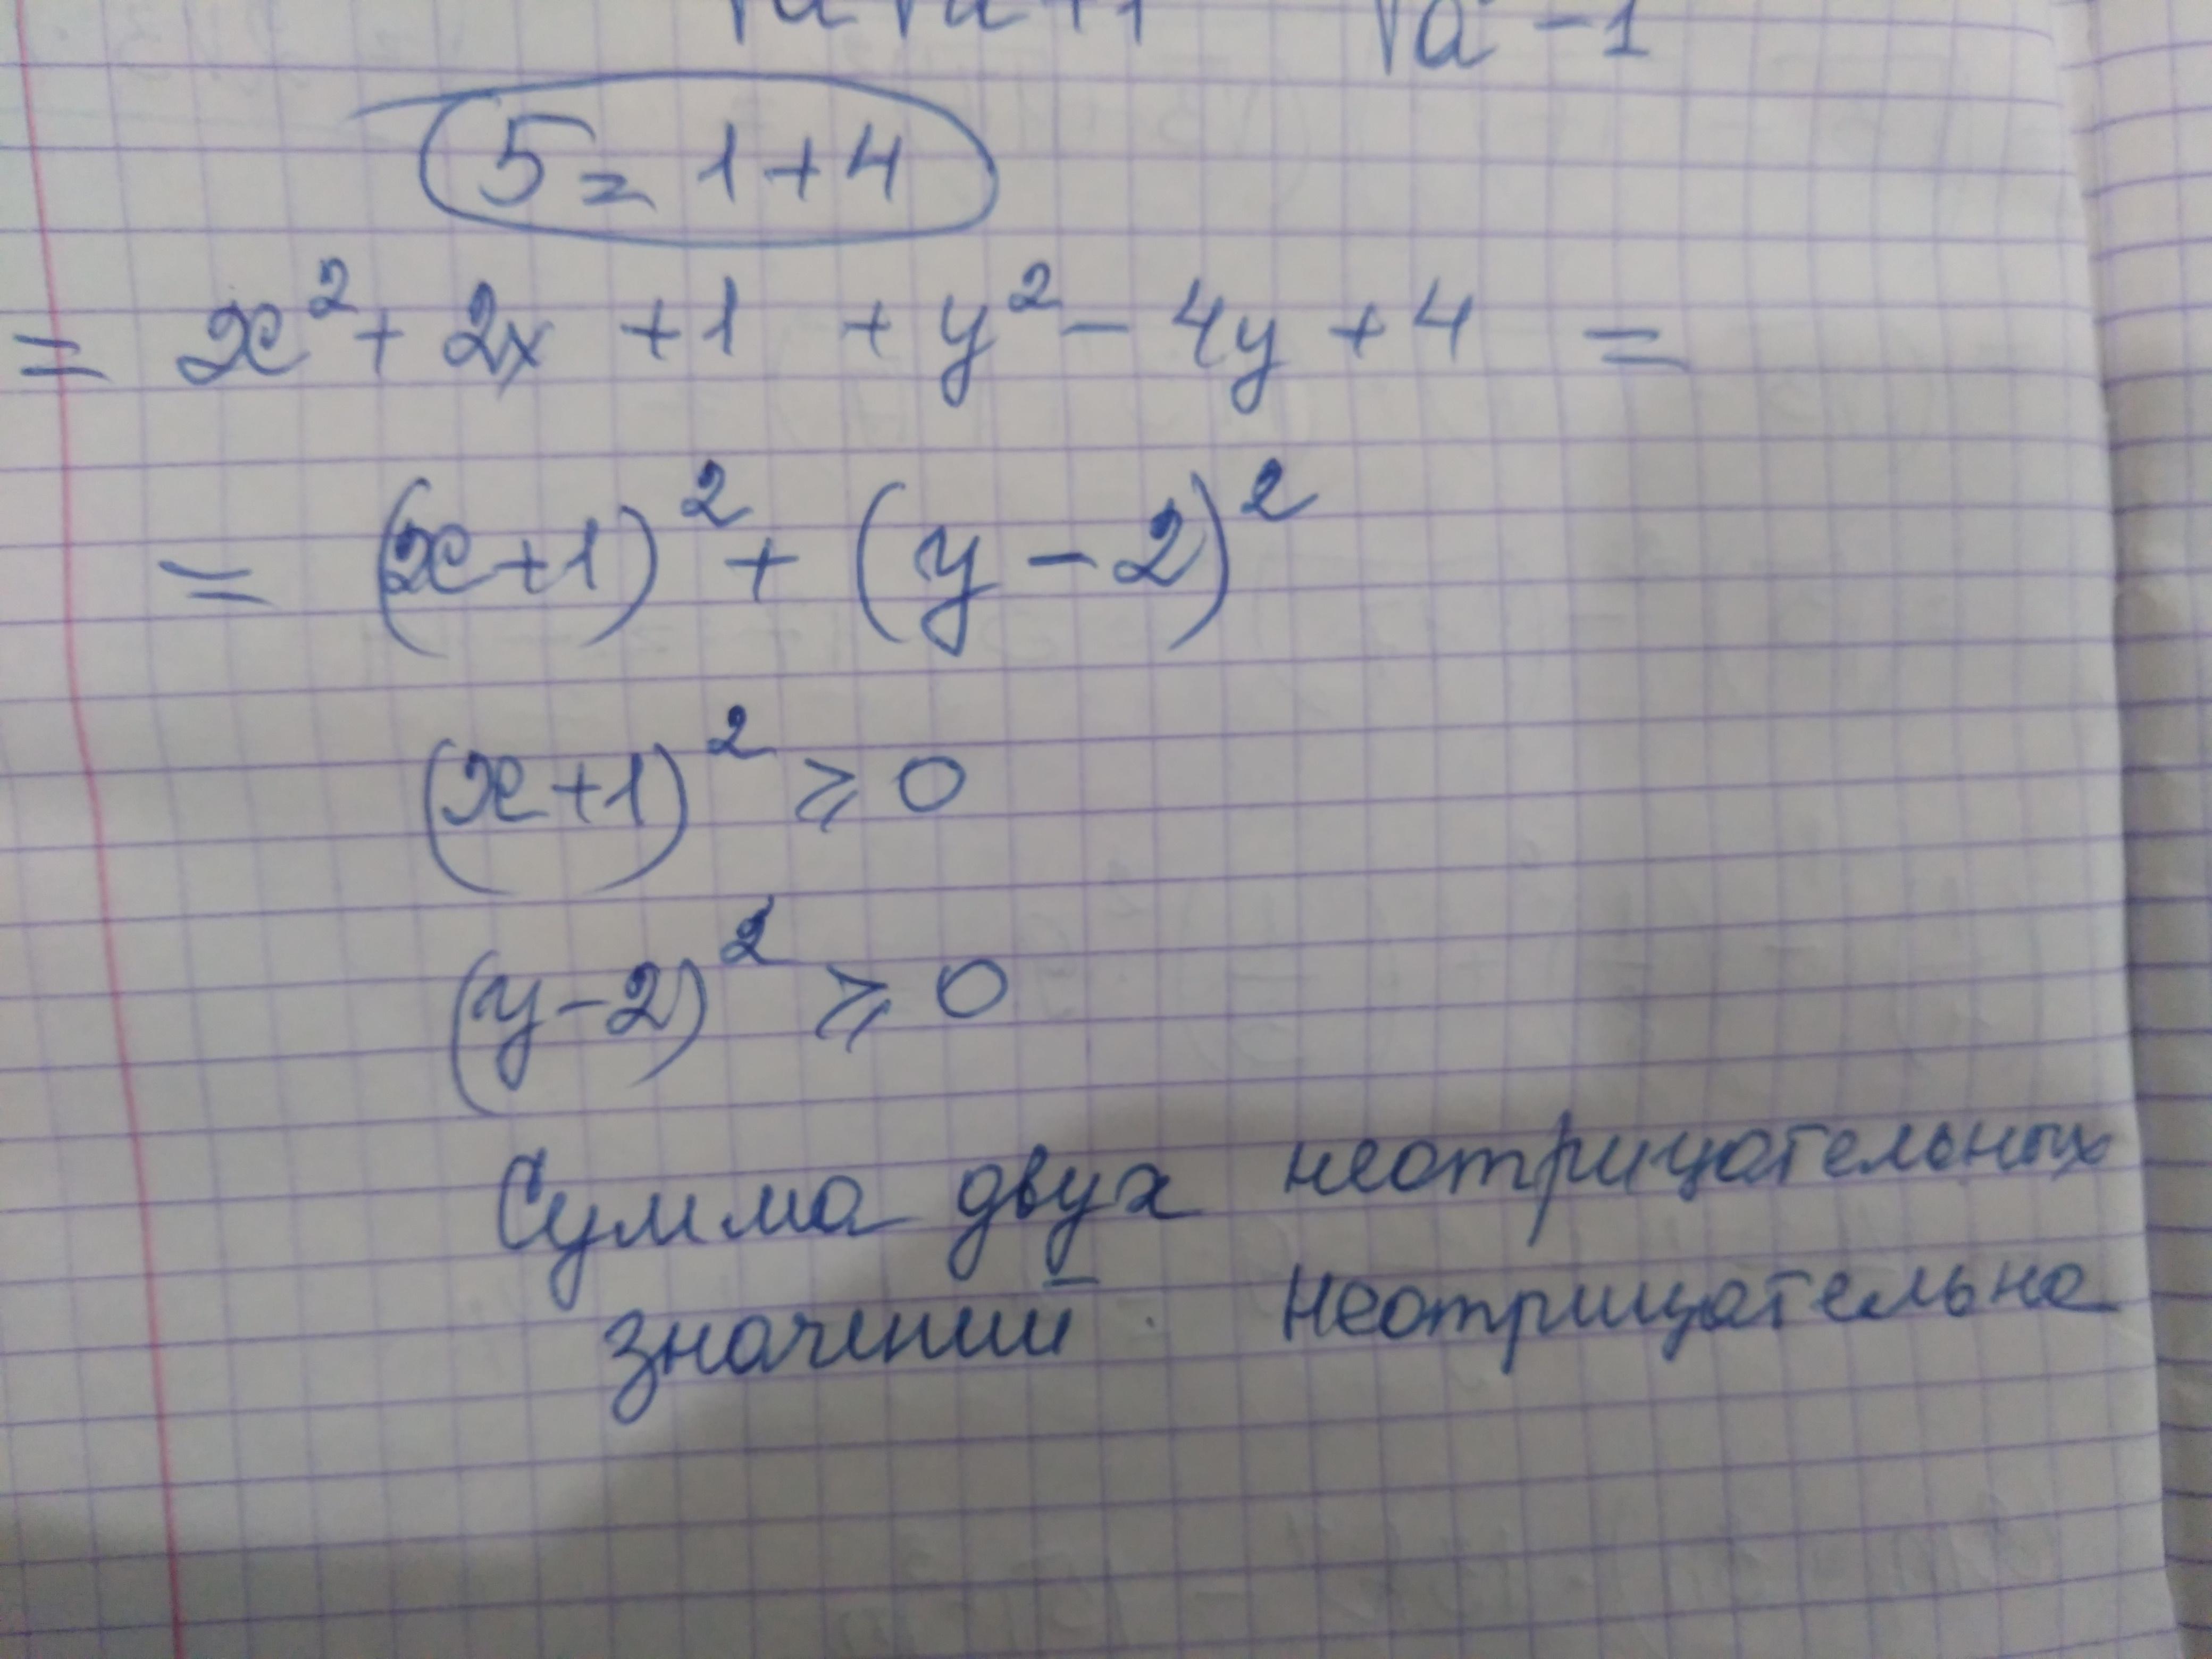 √a √a + 1 √a - 1
5 = 1 + 4
= x² + 2x + 1 + y² - 4y + 4 =
= (x+1)² + (y - 2)²
(x+1)² ⩾ 0
(y-2)² ⩾ 0
Сумма двух неотрицательных
значений неотрицательна